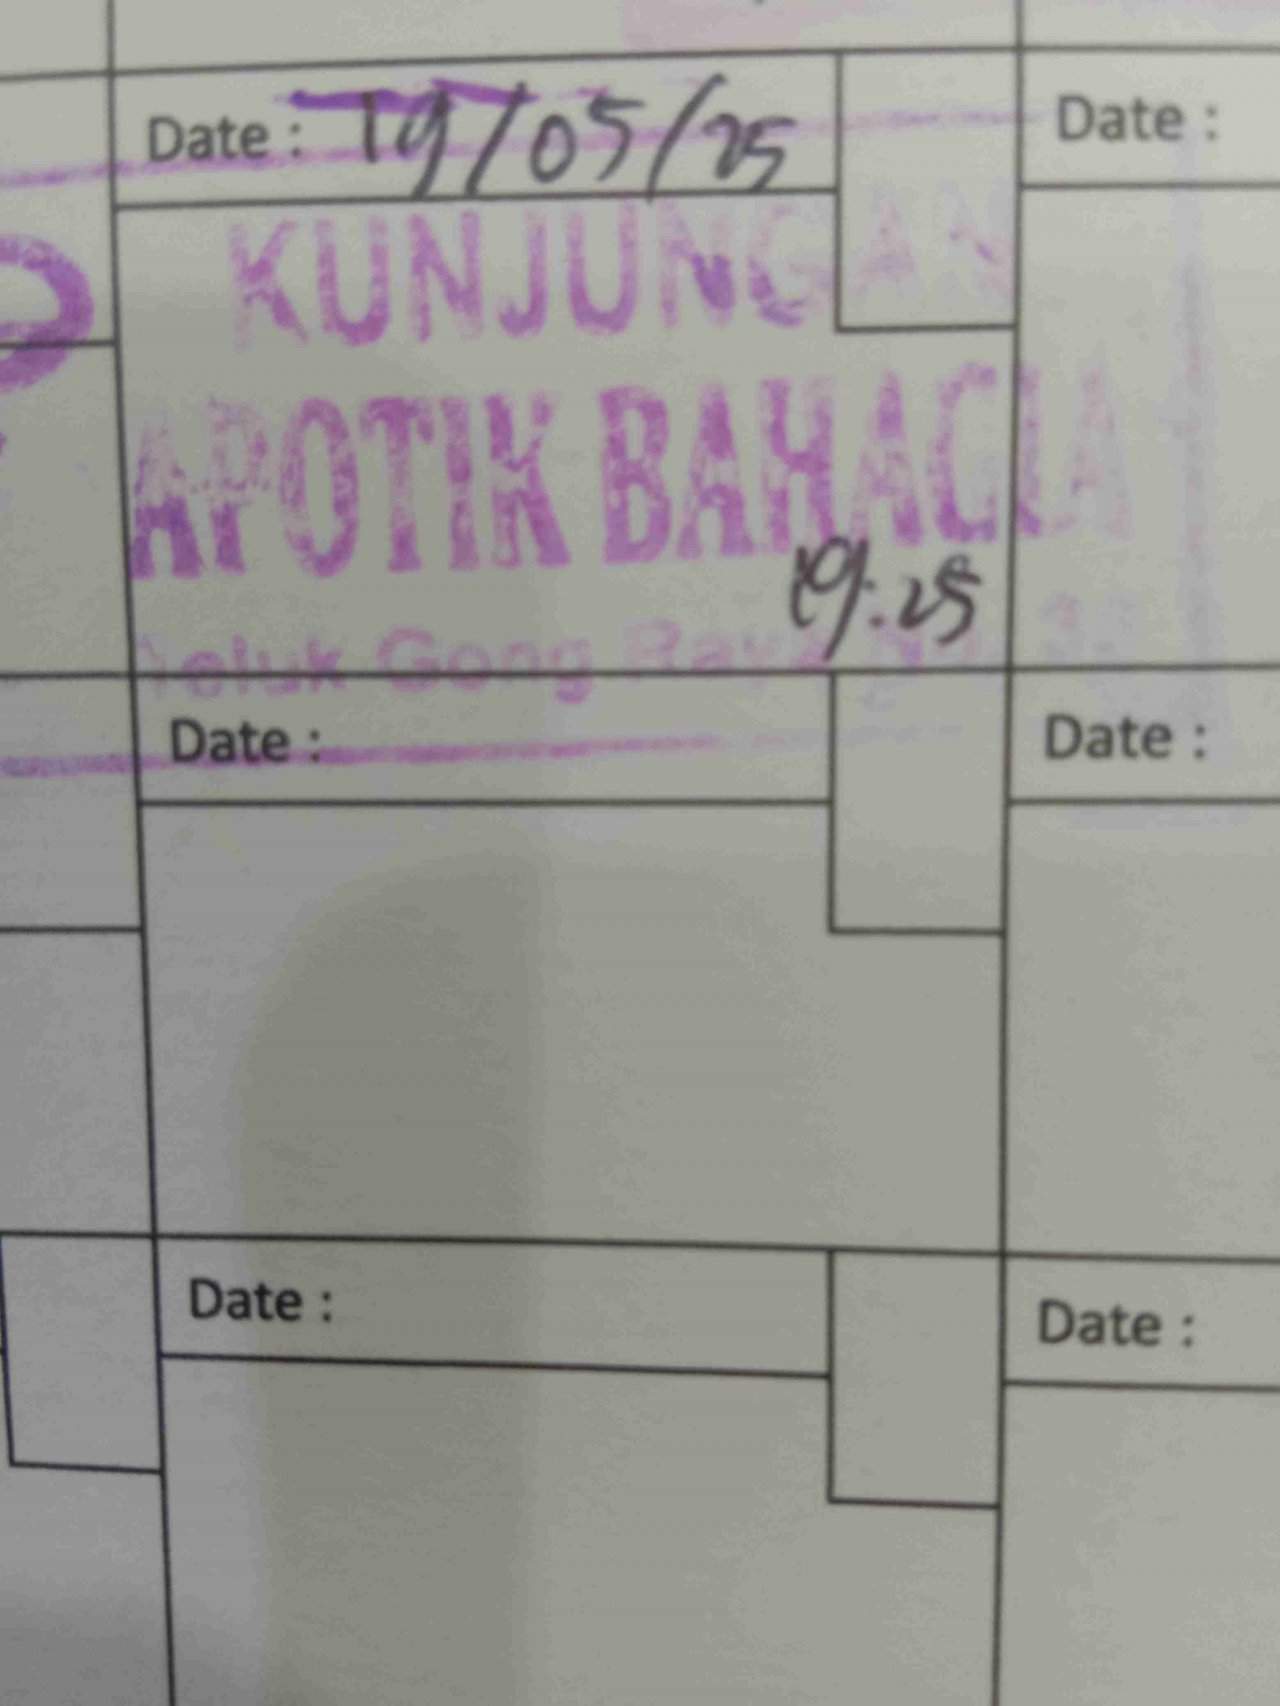 Date : 19/05/25
Date :
KUNJUNGAN
APOTIK BAHAGIA
19.25
Teluk Gong Raya
Date :
Date :
Date :
Date :